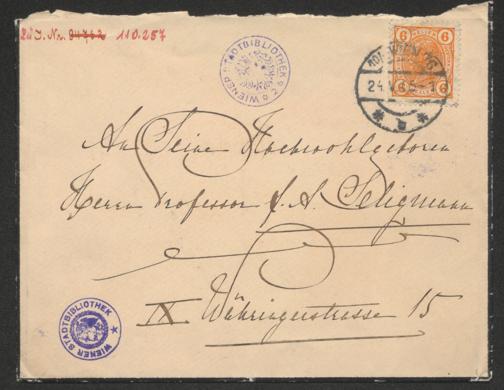 zu J. Nr. 94762 110.257
WIENER STADTBIBLIOTHEK
6
6
6
6
WIEN
24.V
An Seine Hochwohlgeboren
Herrn Professor f. A. Seligmann
IX Währingerstrasse 15
WIENER STADTBIBLIOTHEK